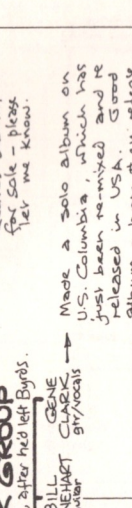 for sale - please
let me know.
K GROUP
, after hed left Byrds.
BILL
NEHART
GENE
CLARK
gtr/vocals
Made a solo album on
U.S. Columbia, which has
just been re-mixed and re
released in USA. Good